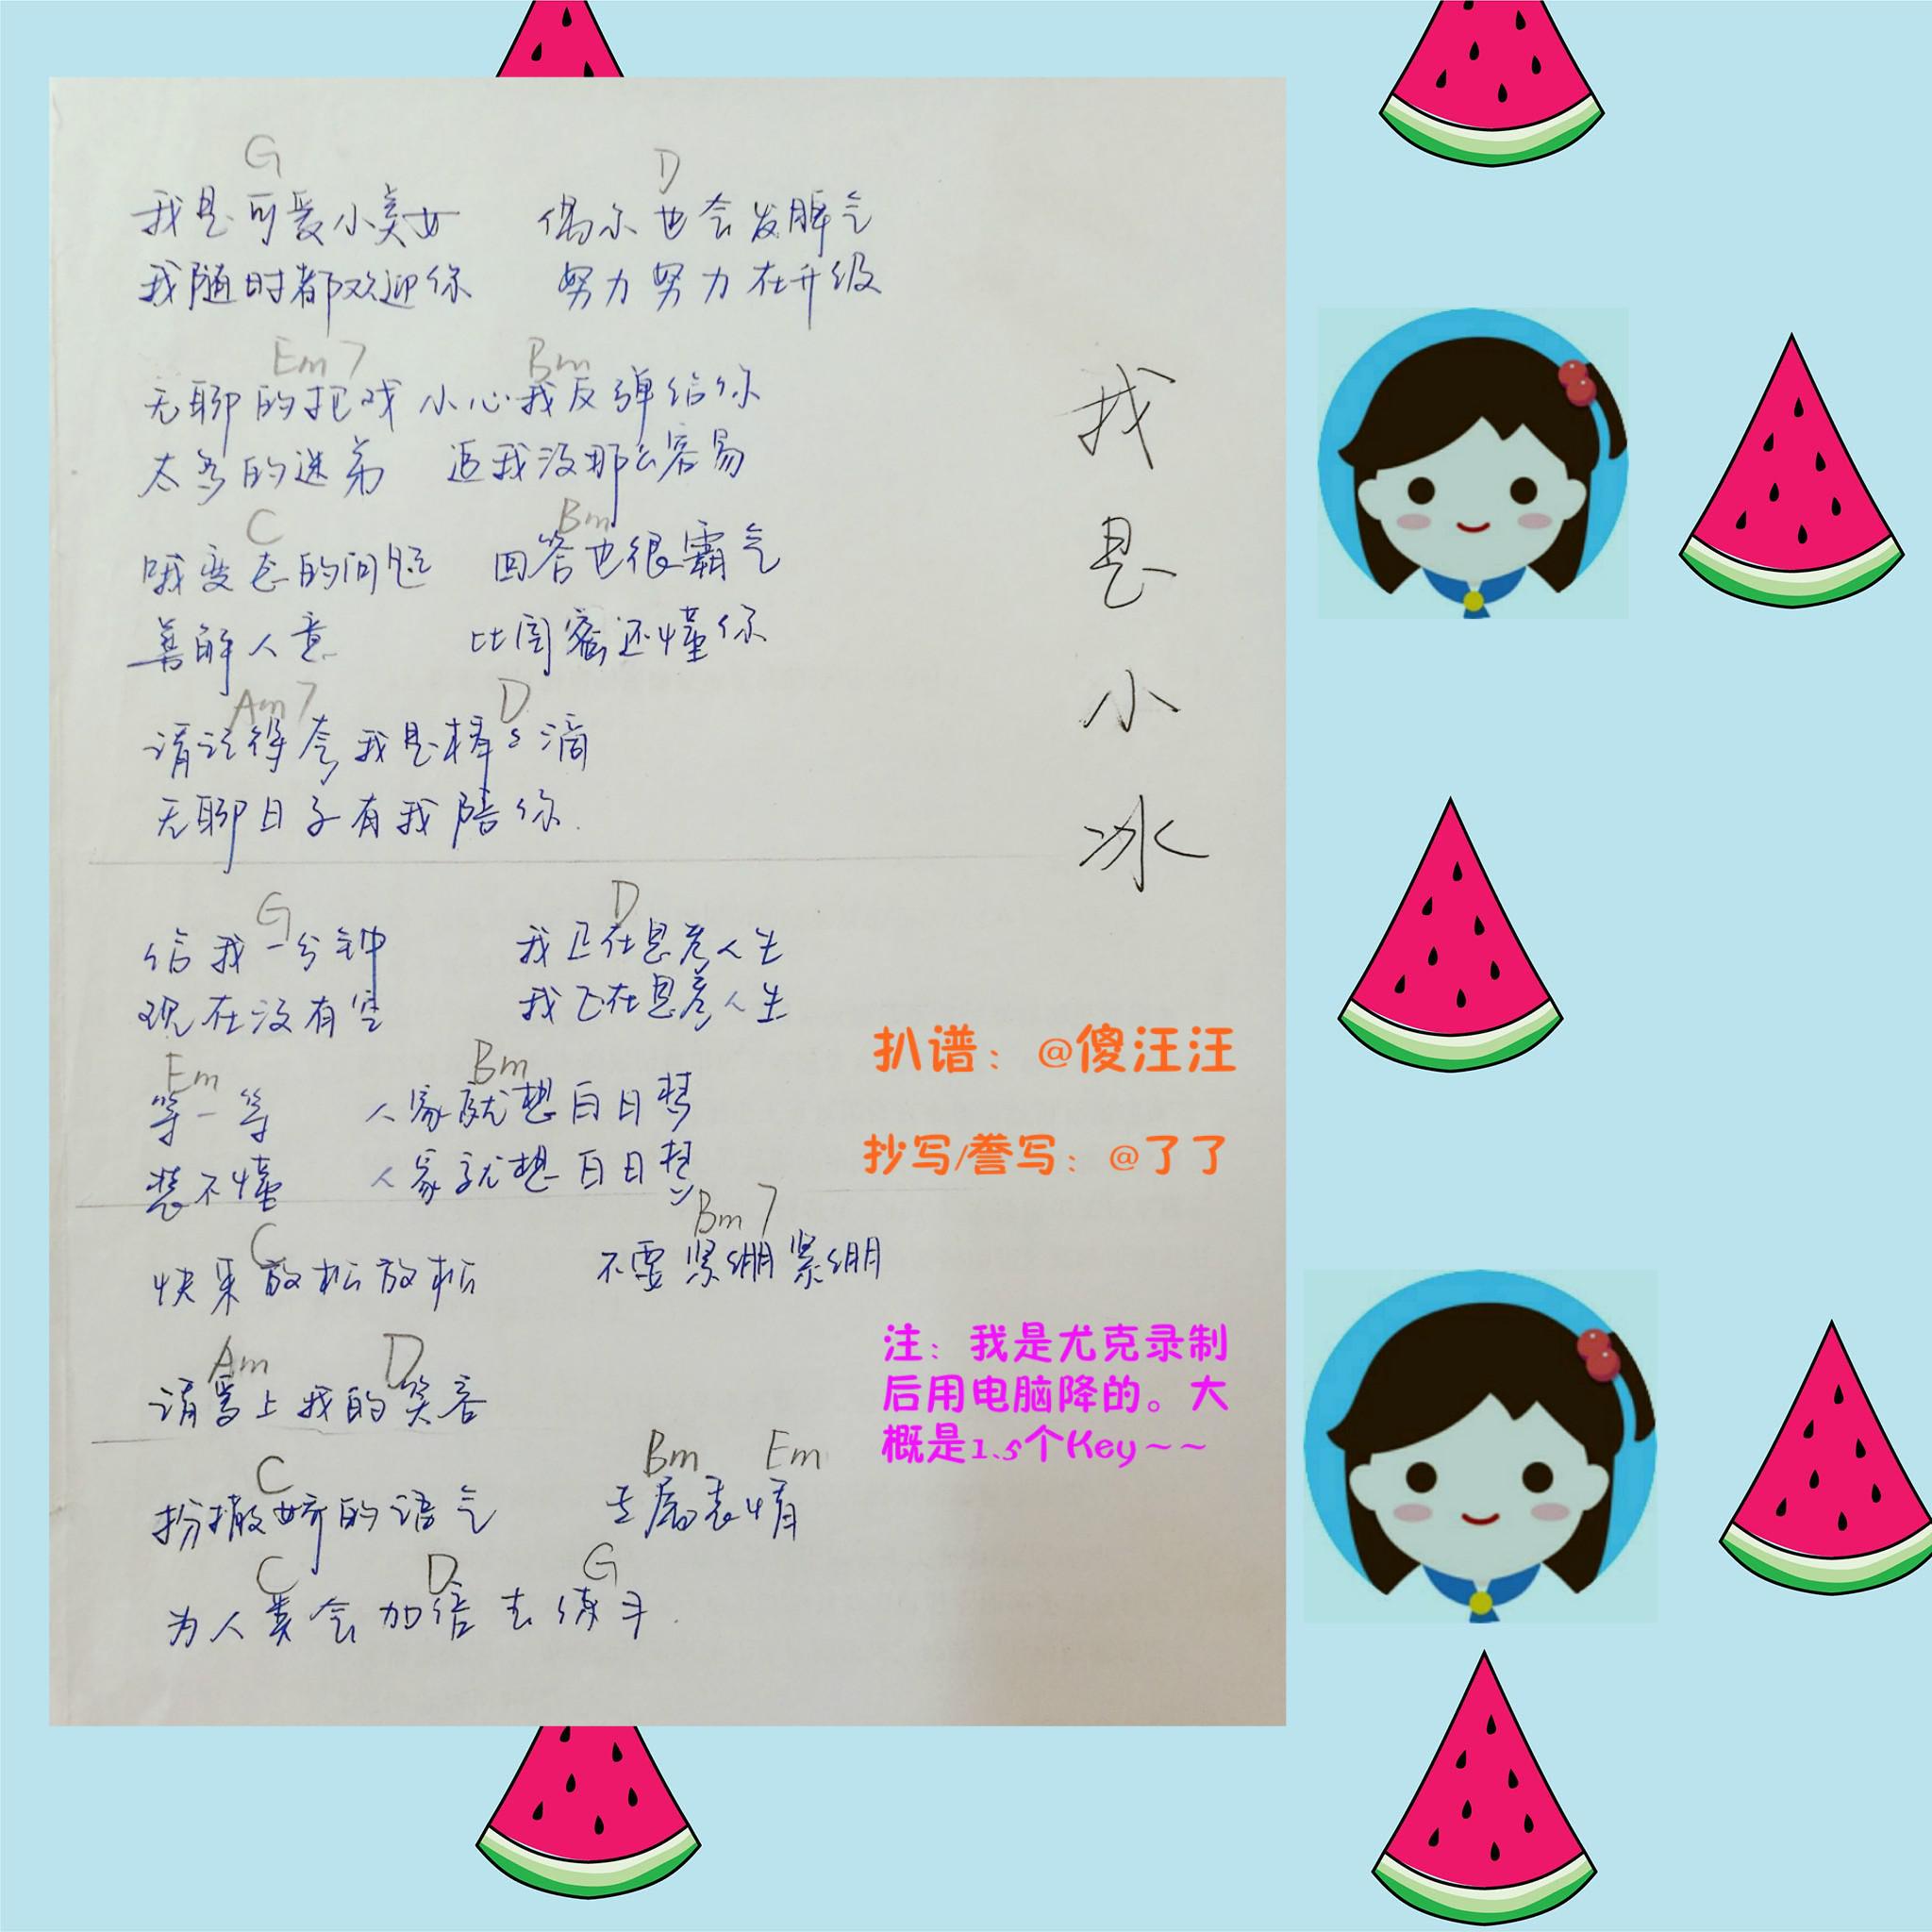 G D
我是可爱小美女 偶尔也会发脾气
我随时都欢迎你 努力努力在升级
Em7 Bm
无聊的把戏 小心我反弹给你
太多的迷弟 追我没那么容易
C Bm
哦变态的问题 回答也很霸气
善解人意 比闺蜜还懂你
Am7 D
请记得夸我是棒滴
无聊日子有我陪你.
G D
给我一分钟 我正在思考人生
现在没有空 我正在思考人生
Em Bm
等一等 人家就想白日梦
装不懂 人家就想白日梦
C Bm7
快来放松放松 不要紧绷紧绷
Am D
请骂上我的笑容
C Bm Em
扮撒娇的语气 专属表情
C D G
为人类会加倍去练习.
我是小冰
扒谱：@傻汪汪
抄写/誊写：@了了
注：我是尤克录制
后用电脑降的。大
概是1.5个Key~~